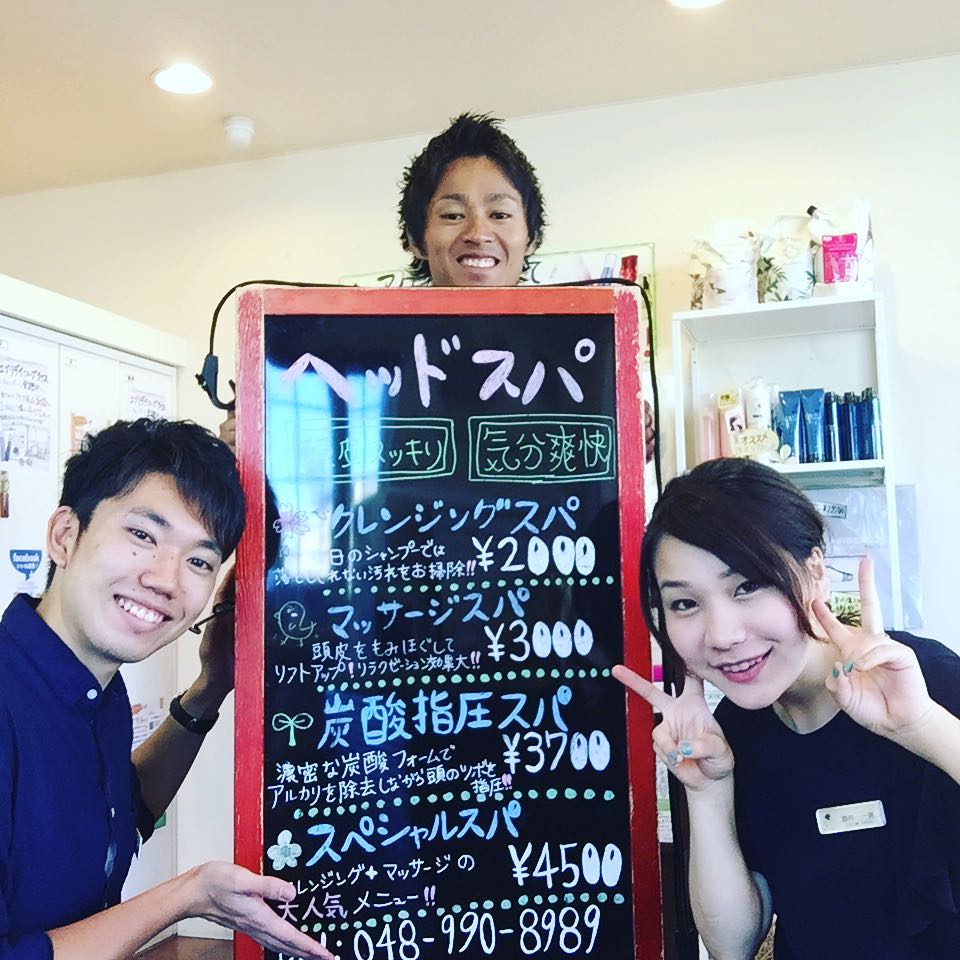 ヘッドスパ
スッキリ
気分爽快
クレンジングスパ
日のシャンプーでは
¥2000
ない汚れをお掃除!!
マッサージスパ
頭皮をもみほぐして
¥3000
リフトアップ!リラクゼーション効果大!!
炭酸指圧スパ
濃密な炭酸フォームで
¥3700
アルカリを除去しながら頭のツボを
指圧!!
スペシャルスパ
レンジング+マッサージの
¥4500
大人気メニュー!!
048-990-8989
facebook
オススメ